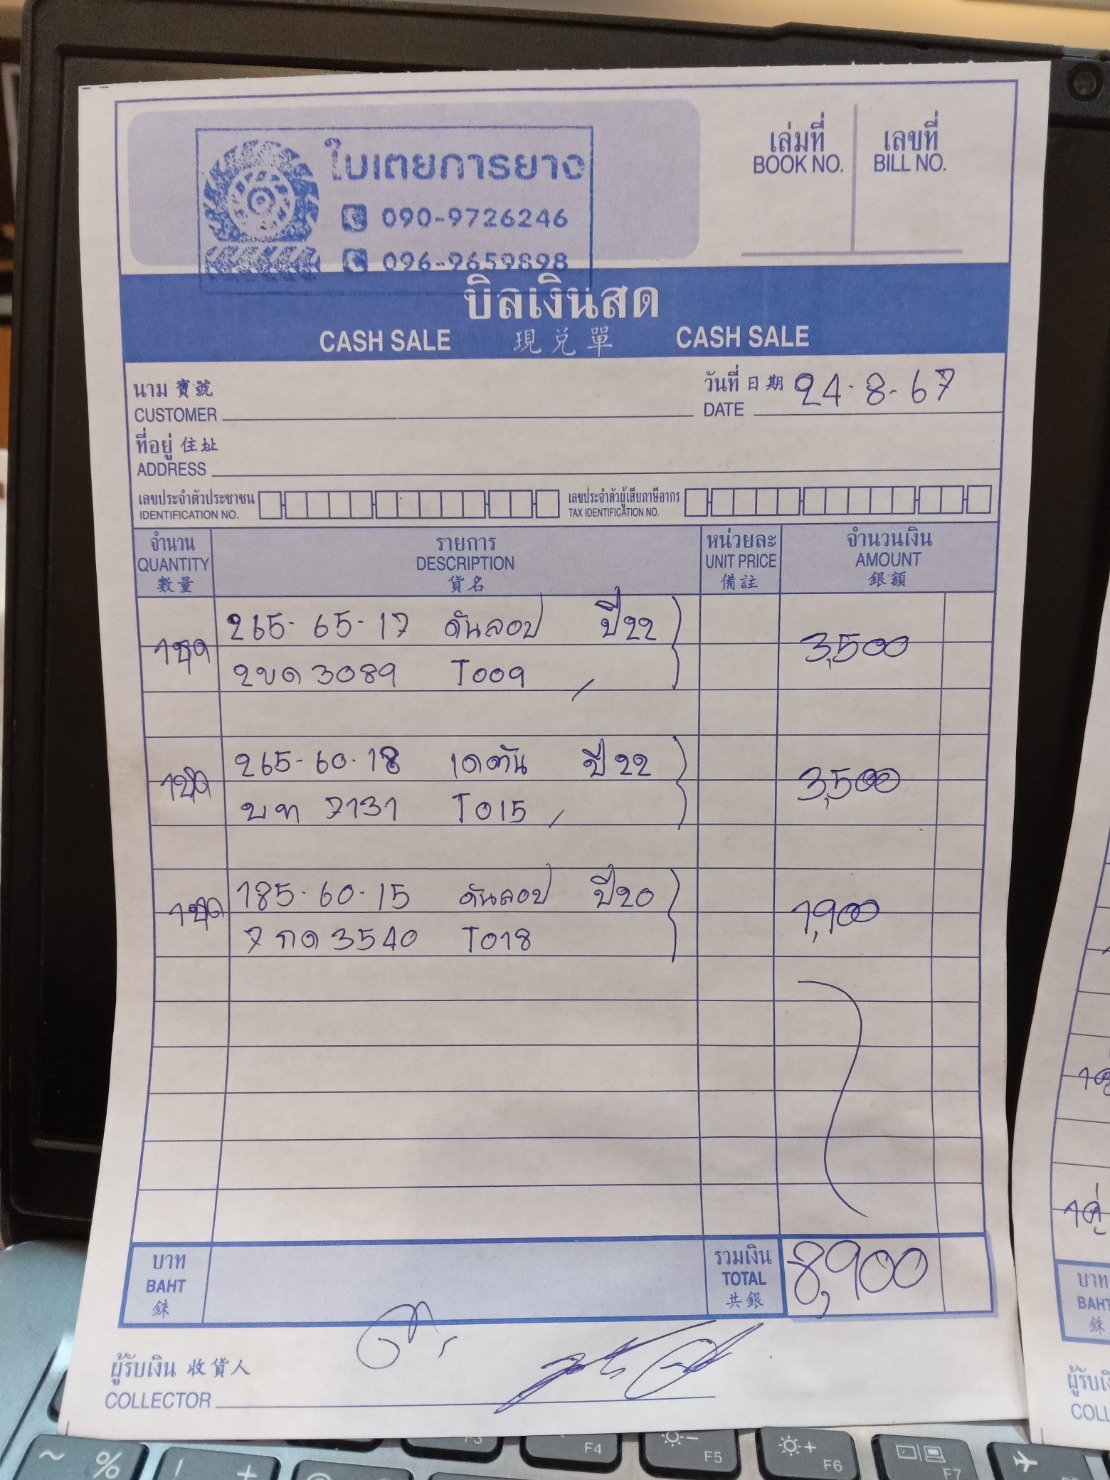 ใบเตยการยาง
090-9726246
096-9659898
เล่มที่ เลขที่
BOOK NO. BILL NO.
บิลเงินสด
CASH SALE 現兌單 CASH SALE
นาม 寶號 วันที่ 日期 24-8-67
CUSTOMER DATE
ที่อยู่ 住址
ADDRESS
เลขประจำตัวประชาชน เลขประจำตัวผู้เสียภาษีอากร
IDENTIFICATION NO. TAX IDENTIFICATION NO.
จำนวน รายการ หน่วยละ จำนวนเงิน
QUANTITY DESCRIPTION UNIT PRICE AMOUNT
數量 貨名 備註 銀額
265-65-17 ดันลอป ปี22
1ชุด 3,500
2ขด 3089 T009
265-60-18 เดตัน ปี22
1ชุด 3,500
บท 7131 T015
185-60-15 ดันลอป ปี20
1ชุด 1,900
7 กด 3540 T018
บาท รวมเงิน 8,900
BAHT TOTAL
銖 共銀
ผู้รับเงิน 收貨人
COLLECTOR
1คู่
บาท
BAHT
銖
~ % + F3 F4 F5 F6 F7